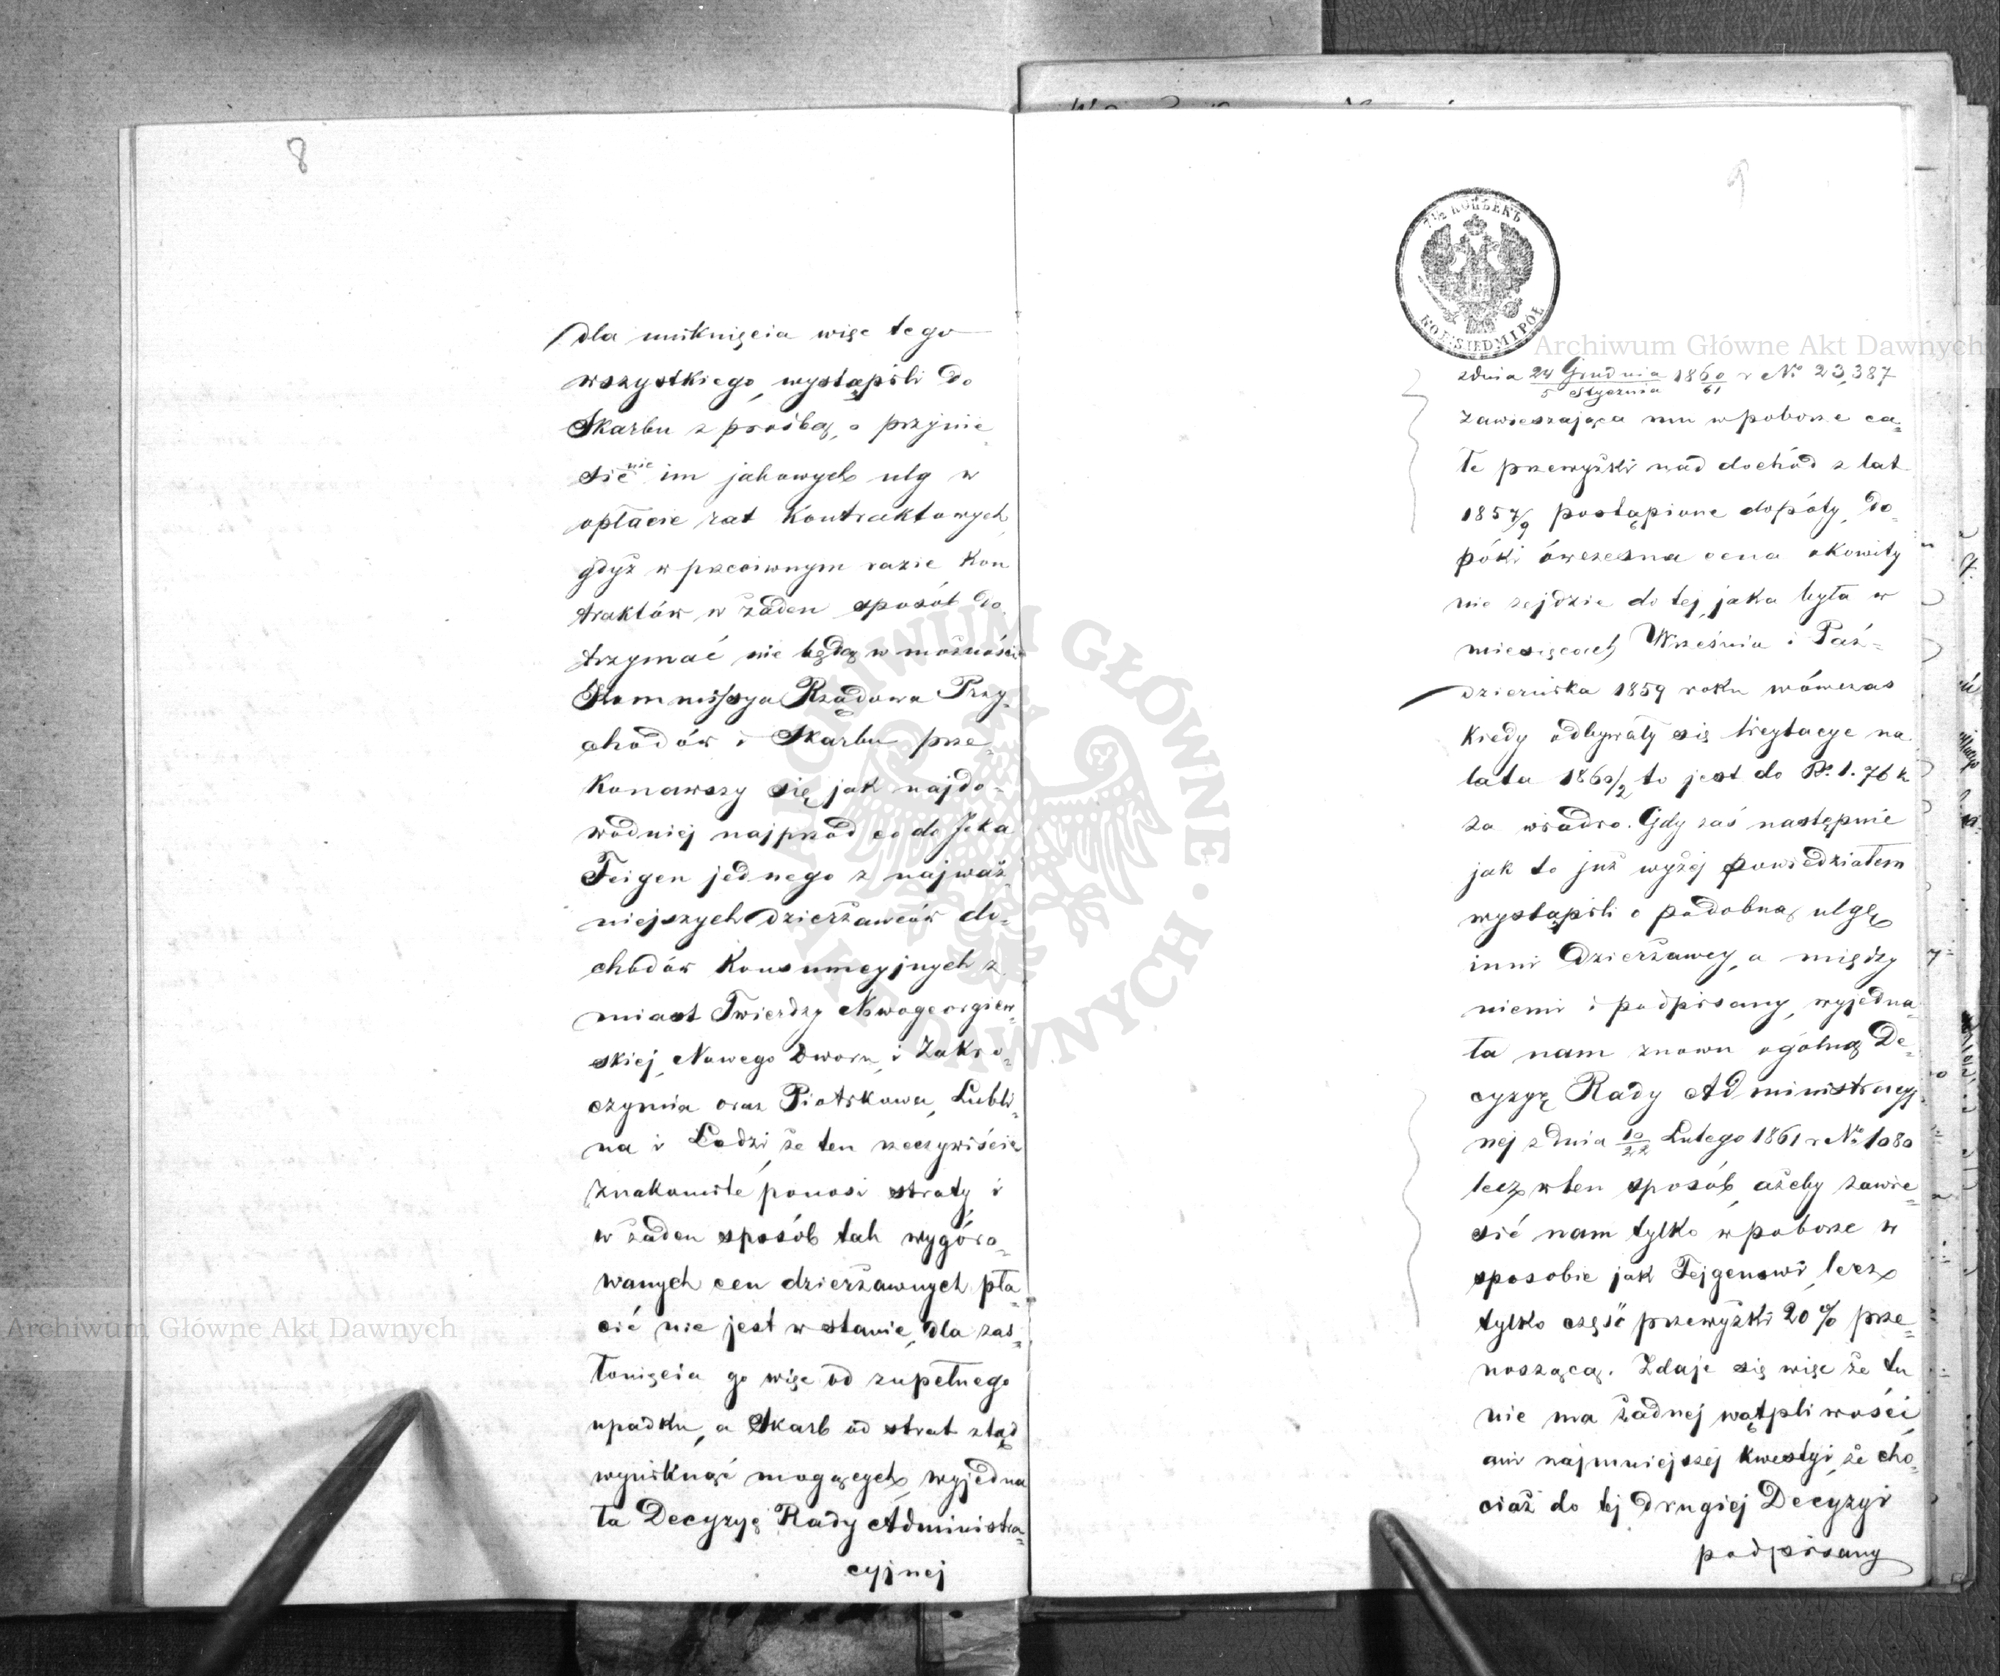 8
dla uniknięcia więc tego
wszystkiego, wystąpili do
Skarbu z prośbą, o przynie
sienie im jakowych ulg w
opłacie rat Kontraktowych
gdyż w przeciwnym razie Kon
traktów w żaden sposób do
trzymać nie będą w możności
Kommissya Rządowa Przy-
chodów i Skarbu prze-
Konawszy się jak najdo-
wodniej najprzód co do Joka
Feigen jednego z najważ-
niejszych dzierżawców do-
chodów Konsumcyjnych z
miast Twierdzy Nowogeorgiew-
skiej, Nowego Dworu, i Zakro-
czymia oraz Piotrkowa, Lubli-
na i Łodzi, że ten rzeczywiście
znakomite ponosi straty, i
w żaden sposób tak wygóro-
wanych cen dzierżawnych pła-
cić nie jest w stanie, dla zas-
łonięcia go więc od zupełnego
upadku, a Skarb od strat ztąd
wyniknąć mogących, wyjedna
ła Decyzyę Rady Administra-
cyjnej
9
7½ КОПѢЕКЪ
KOP. SIEDM I PÓŁ
z dnia 24 Grudnia / 5 Stycznia 1860/61 r No 23,387
zawieszającą mu w poborze ca-
łe przewyżki nad dochód z lat
1857/9 postąpione dopóty, do-
póki ówczesna cena okowity
nie zejdzie do tej, jaka była w
miesiącach Września i Paź-
dziernika 1859 roku wówczas
kiedy odbywały się licytacye na
lata 1860/2 to jest do Rs. 1. 76 k
za wiadro. Gdy zaś następnie
jak to już wyżej powiedziałem
wystąpili o podobną ulgę
inni Dzierżawcy, a między
niemi i podpisany, wyjedna
ła nam znowu ogólną De-
cyzyę Rady Administracyj-
nej z dnia 10/22 Lutego 1861 r No 1080
lecz w ten sposób, ażeby zawie-
sić nam tylko w poborze w
sposobie jak Fejgenowi, lecz
tylko część przewyżki 20 % prze-
noszącą. Zdaje się więc że tu
nie ma żadnej wątpliwości,
ani najmniejszej kwestyi, że cho-
ciaż do tej drugiej Decyzyi
podpisany
Archiwum Główne Akt Dawnych
Archiwum Główne Akt Dawnych
ARCHIWUM GŁÓWNE AKT DAWNYCH